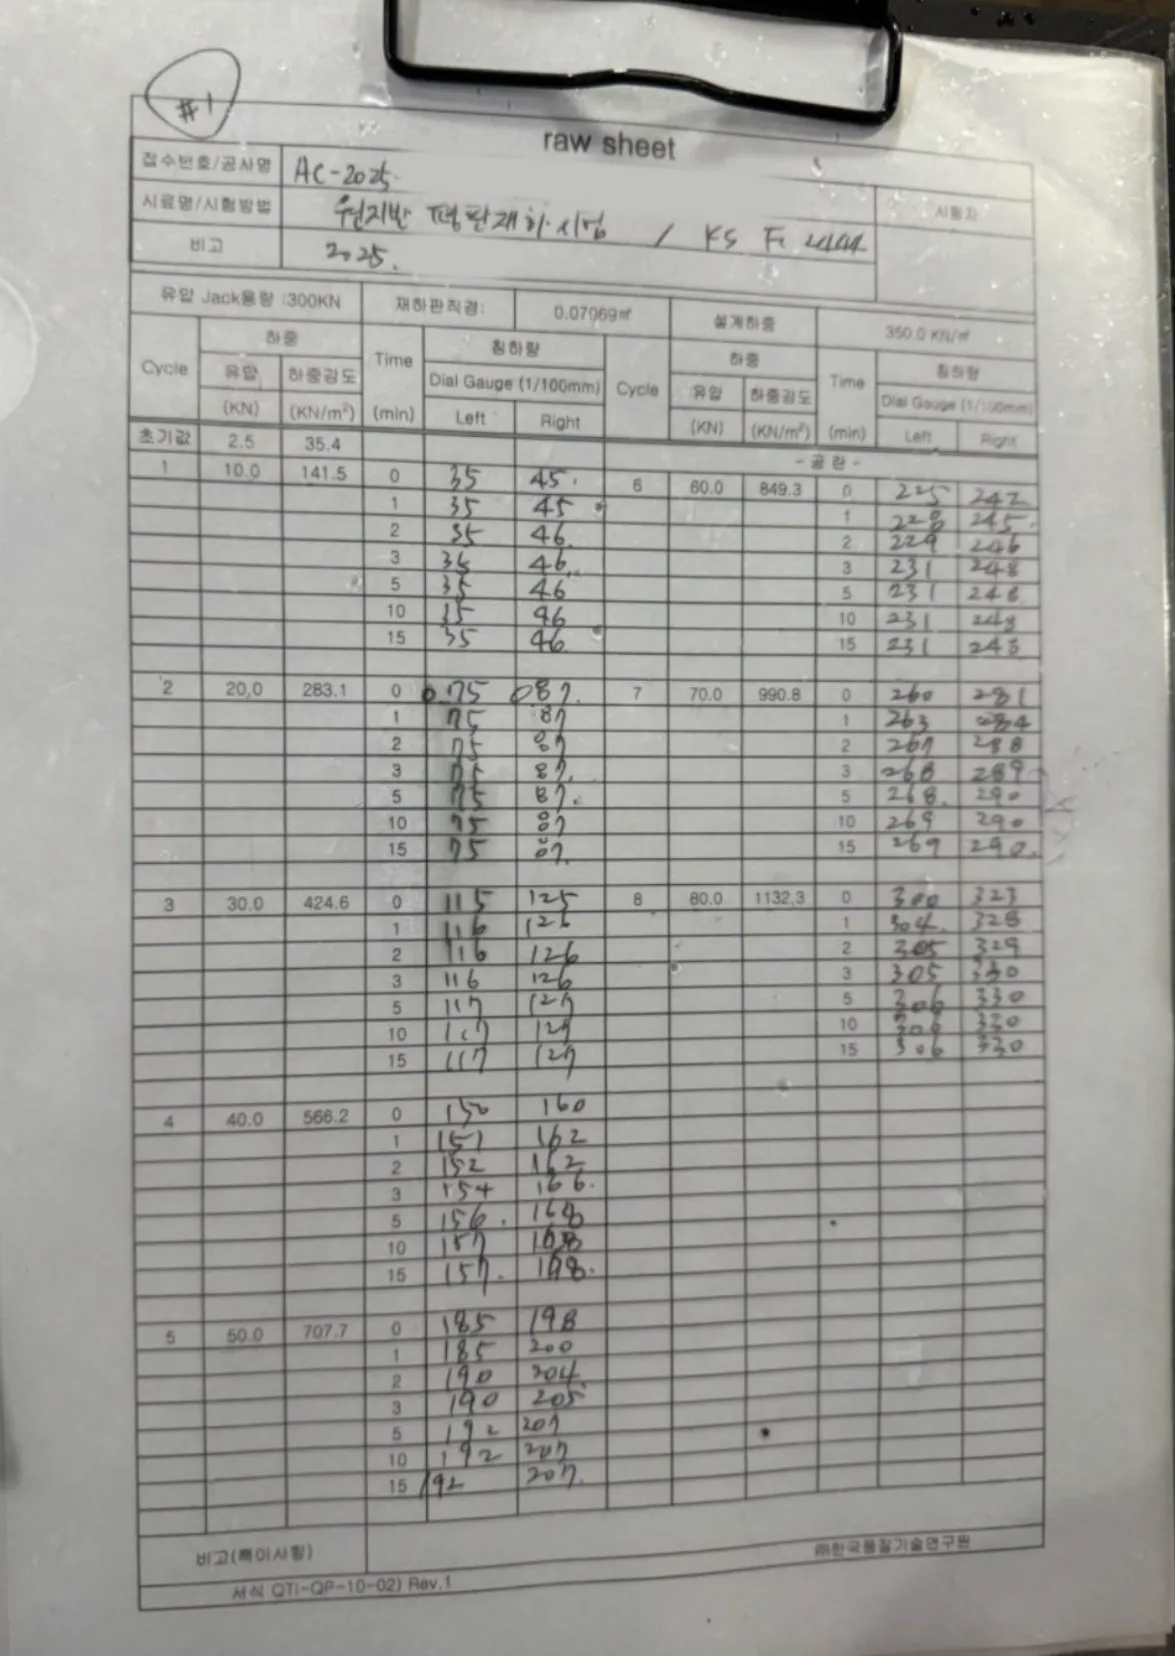 #1
raw sheet
접수번호/공사명 AC-2025.
시험자
시료명/시험방법 원지반 평판재하시험 / KS F 4444
비고 2025.
유압 Jack용량 :300KN 재하판직경: 0.07069㎡ 설계하중 350.0 KN/㎡
Cycle 하중 Time 침하량 Cycle 하중 Time 침하량
유압 하중강도 Dial Gauge (1/100mm) 유압 하중강도 Dial Gauge (1/100mm)
(KN) (KN/m²) (min) Left Right (KN) (KN/m²) (min) Left Right
초기값 2.5 35.4 - 공 란 -
1 10.0 141.5 0 35 45. 6 60.0 849.3 0 225 242
1 35 45 1 228 245.
2 35 46. 2 229 246
3 35 46. 3 231 248
5 35 46 5 231 248
10 35 46 10 231 248
15 35 46. 15 231 248
2 20.0 283.1 0 0.75 087. 7 70.0 990.8 0 260 281
1 75 87 1 263 284
2 75 87 2 267 288
3 75 87. 3 268 289
5 75 87. 5 268. 290
10 75 87 10 269 290
15 75 87. 15 269 290.
3 30.0 424.6 0 115 125 8 80.0 1132.3 0 300 323
1 116 126 1 304. 328
2 116 126 2 305 329
3 116 126 3 305 330
5 117 127 5 306 330
10 117 127 10 306 330
15 117 127 15 306 330
4 40.0 566.2 0 150 160
1 151 162
2 152 162
3 154 166.
5 156. 168
10 157 168
15 157. 168.
5 50.0 707.7 0 185 198
1 185 200
2 190 204
3 190 205
5 192 207
10 192 207
15 192 207.
비고(특이사항)
㈜한국품질기술연구원
서식 QTI-QP-10-02) Rev.1